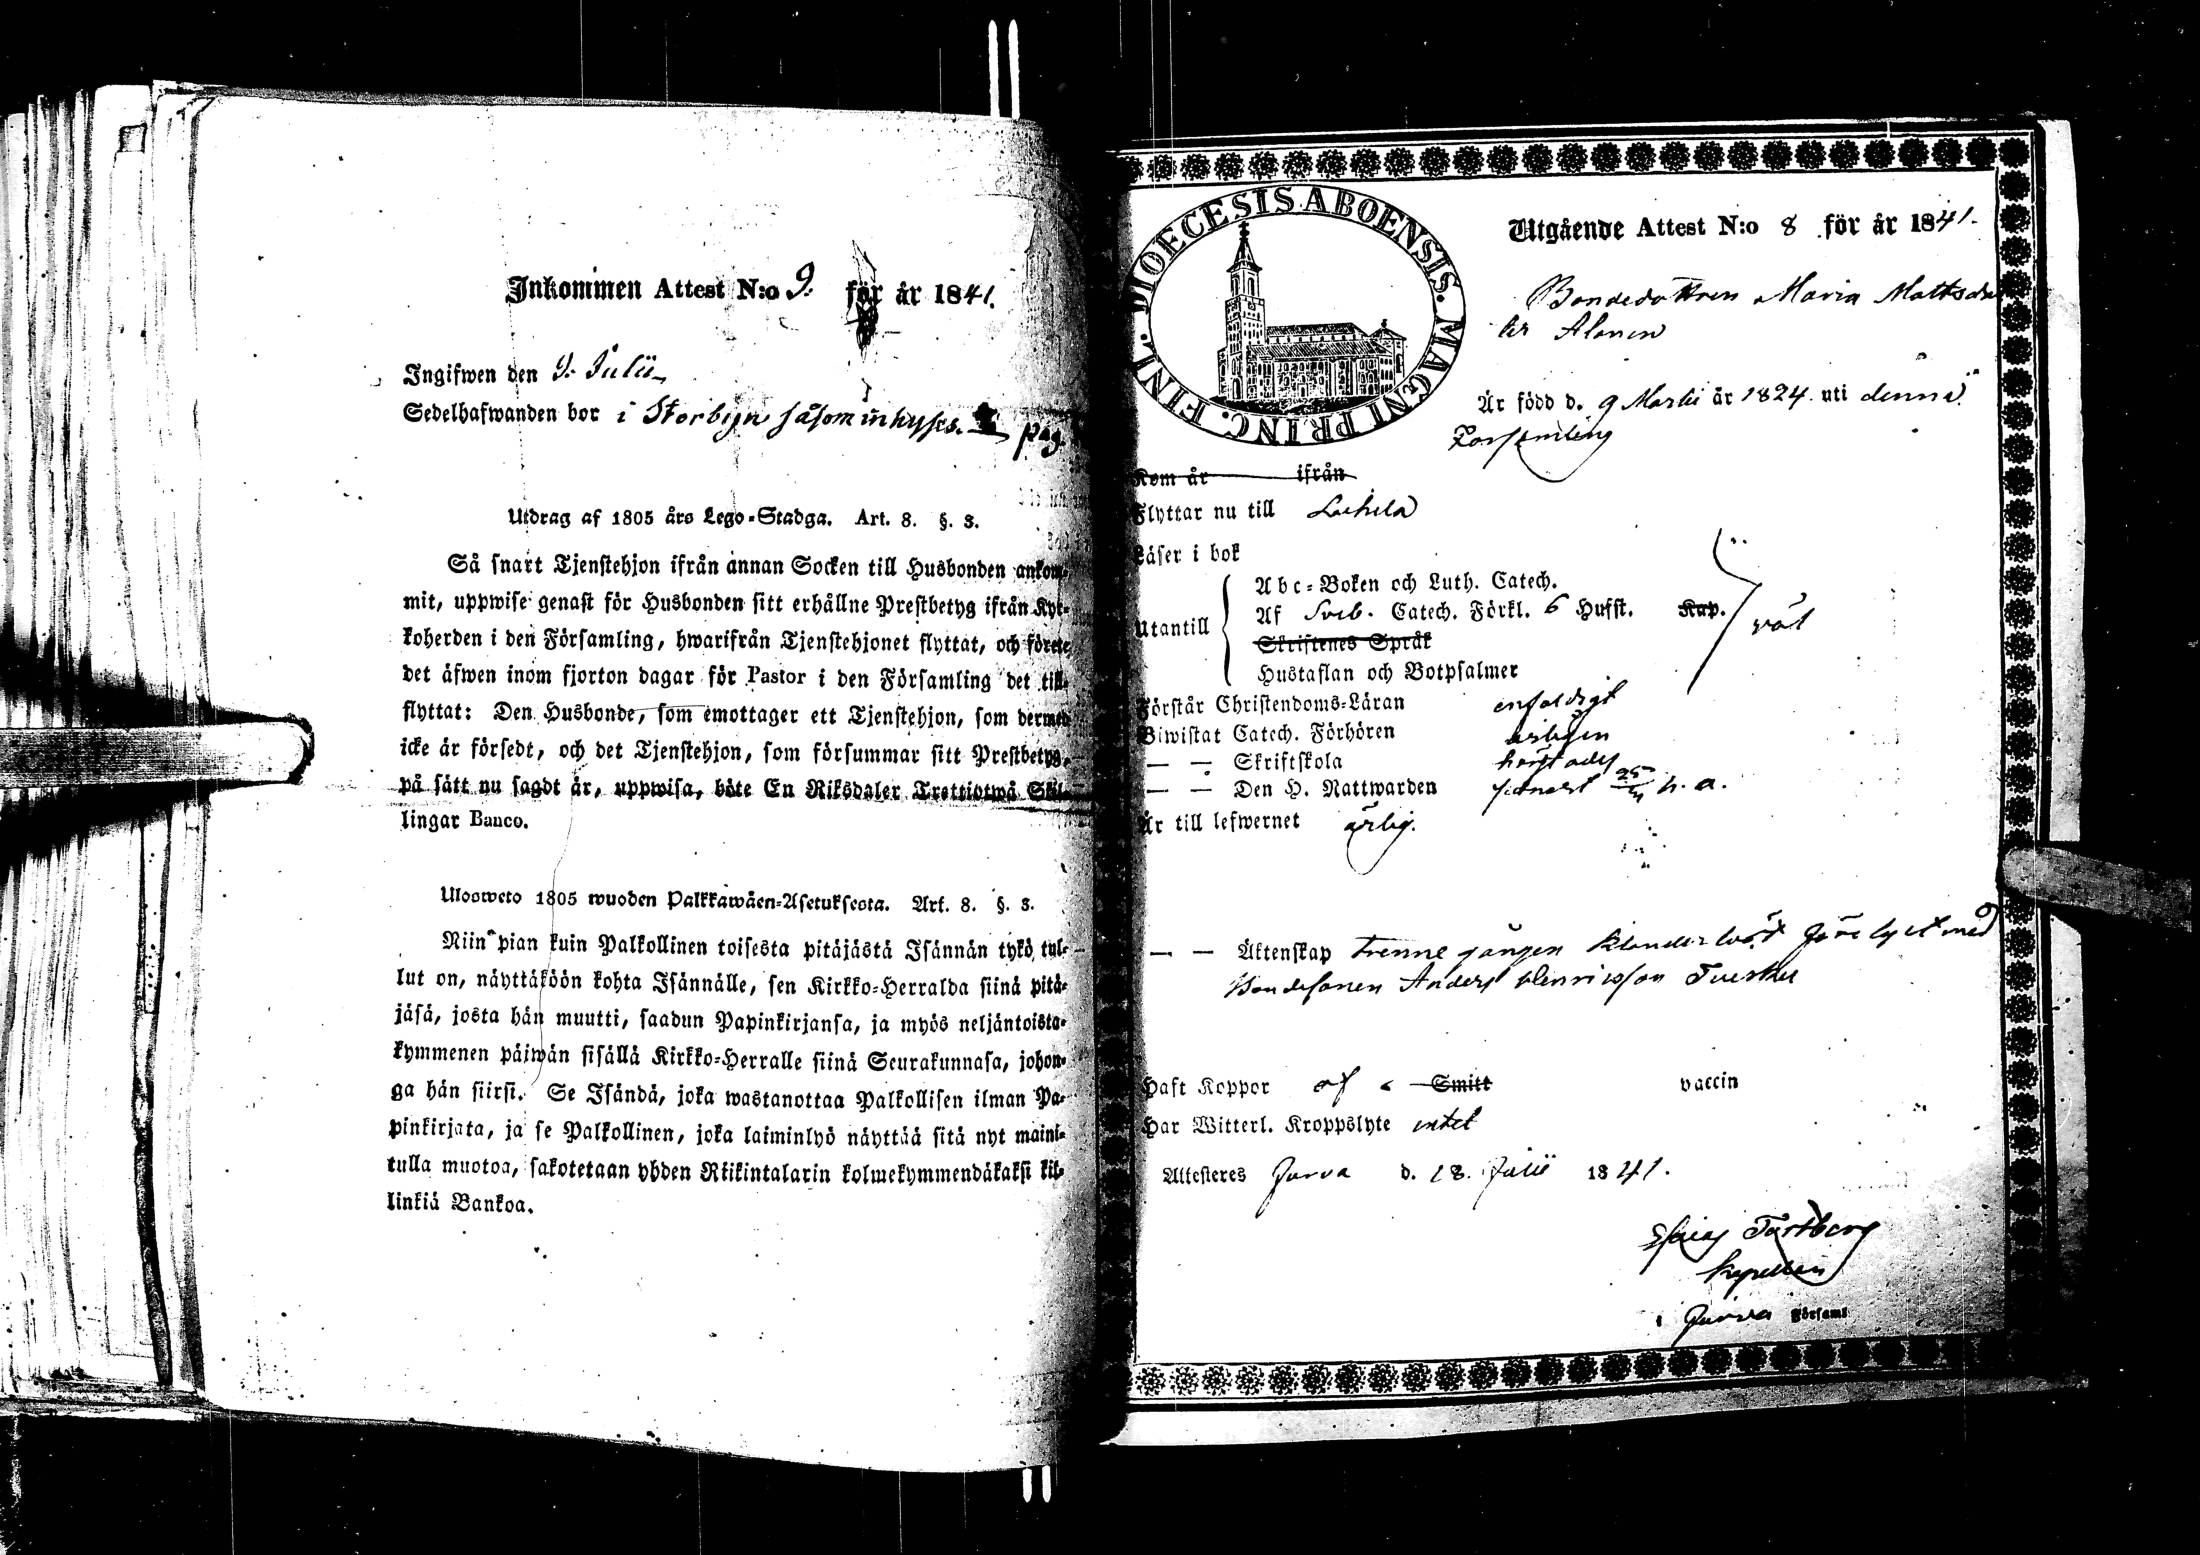 Inkommen Attest N:o 9. för år 1841.
Ingifwen den 9. Julii
Sedelhafwanden bor i Storbyn såsom inhyses. pag.
Utdrag af 1805 års Lego-Stadga. Art. 8. §. 3.
Så snart Tjenstehjon ifrån annan Socken till Husbonden ankom-
mit, uppwise genast för Husbonden sitt erhållne Prestbetyg ifrån Kyr-
koherden i den Församling, hwarifrån Tjenstehjonet flyttat, och förete
det äfwen inom fjorton dagar för Pastor i den Församling det till-
flyttat: Den Husbonde, som emottager ett Tjenstehjon, som dermed
icke är försedt, och det Tjenstehjon, som försummar sitt Prestbetyg,
på sätt nu sagdt är, uppwisa, böte En Riksdaler Trettiotwå Skil-
lingar Banco.
Ulosweto 1805 wuoden Palkkawäen-Asetuksesta. Art. 8. §. 3.
Niin pian kuin Palkollinen toisesta pitäjästä Isännän tykö tul-
lut on, näyttäköön kohta Isännälle, sen Kirkko-Herralda siinä pitä-
jäsä, josta hän muutti, saadun Papinkirjansa, ja myös neljäntoista-
kymmenen päiwän sisällä Kirkko-Herralle siinä Seurakunnasa, johon-
ga hän siirsi. Se Isändä, joka wastanottaa Palkollisen ilman Pa-
pinkirjata, ja se Palkollinen, joka laiminlyö näyttää sitä nyt maini-
tulla muotoa, sakotetaan yhden Riikintalarin kolmekymmendäkaksi kil-
linkiä Bankoa.
DIOECESIS ABOENSIS. MAGNI PRINC. FINL.
Utgående Attest N:o 8 för år 1841.
Bondedottren Maria Mattsdot
ter Alanen
Är född d. 9 Martii år 1824. uti denna
Församling
Kom år ifrån
Flyttar nu till Lachela
Läser i bok
Utantill
Abc-Boken och Luth. Catech.
Af Sveb. Catech. Förkl. 6 Hufst. Kap.
väl
Skriftenes Språk
Hustaflan och Botpsalmer
Förstår Christendoms-Läran enfaldigt
Biwistat Catech. Förhören årligen
— — Skriftskola
— — Den H. Nattwarden senast 25/4 h. a.
Är till lefwernet ärlig.
— — Äktenskap trenne gånger förlyst med
Bondesonen Anders Henriksson
Haft Koppor af Smitt vaccin
Har Witterl. Kroppslyte intet
Attesteres Jurva d. 18. Julii 1841.
Kapellan
i Jurva Församl